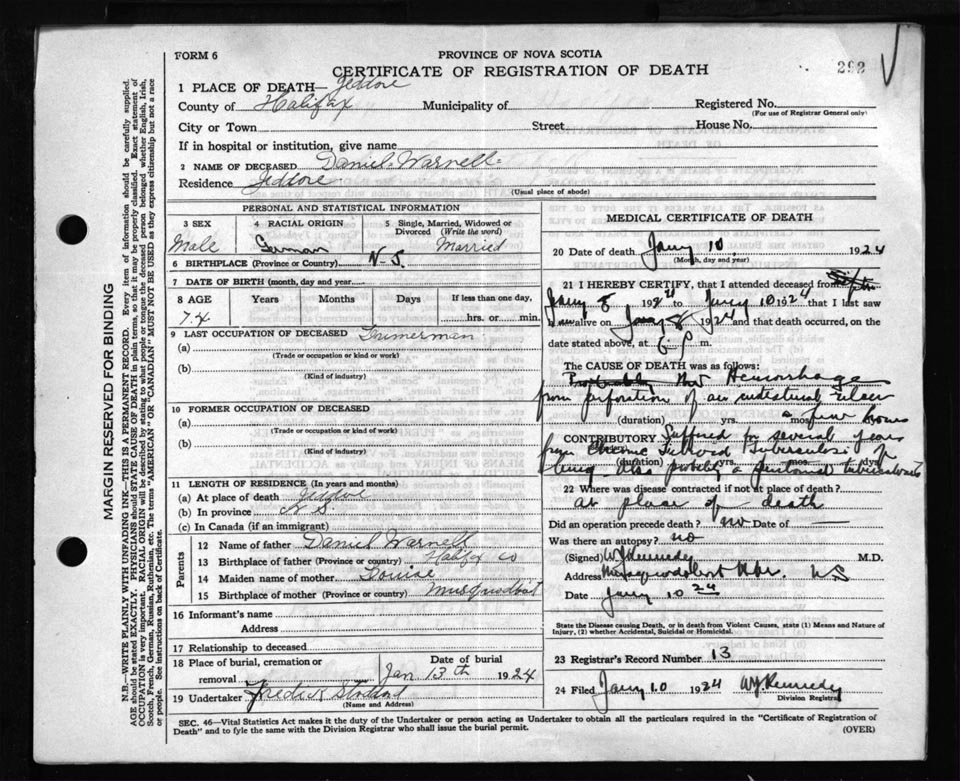 FORM 6
PROVINCE OF NOVA SCOTIA
CERTIFICATE OF REGISTRATION OF DEATH
292
1 PLACE OF DEATH— Jeddore
County of Halifax Municipality of Registered No.
(For use of Registrar General only)
City or Town Street House No.
If in hospital or institution, give name
2 NAME OF DECEASED Daniel Warnell
Residence Jeddore
(Usual place of abode)
PERSONAL AND STATISTICAL INFORMATION
3 SEX 4 RACIAL ORIGIN 5 Single, Married, Widowed or Divorced (Write the word)
Male German Married
6 BIRTHPLACE (Province or Country) N-S.
7 DATE OF BIRTH (month, day and year)
8 AGE Years Months Days If less than one day,
74 hrs. or min.
9 LAST OCCUPATION OF DECEASED
(a)
(Trade or occupation or kind of work)
(b)
(Kind of industry)
10 FORMER OCCUPATION OF DECEASED
(a)
(Trade or occupation or kind of work)
(b)
(Kind of industry)
11 LENGTH OF RESIDENCE (In years and months)
(a) At place of death Jeddore
(b) In province N S.
(c) In Canada (if an immigrant)
Parents
12 Name of father Daniel Warnell
13 Birthplace of father (Province or country) Halifax Co
14 Maiden name of mother Louise
15 Birthplace of mother (Province or country) Musquodoboit
16 Informant's name
Address
17 Relationship to deceased
18 Place of burial, cremation or removal Date of burial
Jan 13th 1924
19 Undertaker Fredrick Stoddart
(Name and Address)
MEDICAL CERTIFICATE OF DEATH
20 Date of death Jany 10 1924
(Month, day and year)
21 I HEREBY CERTIFY, that I attended deceased from
Jany 8 1924 to Jany 10 1924 that I last saw
h alive on Jany 8 1924 and that death occurred, on
date stated above, at 6 P m.
The CAUSE OF DEATH was as follows:
Hemorrhage
from perforation of an
(duration) yrs. mos. a few hours
CONTRIBUTORY Suffered for several years
from Chronic Tuberculosis of
(duration) yrs. mos. dys.
Lung also
22 Where was disease contracted if not at place of death?
at place of death
Did an operation precede death? no Date of —
Was there an autopsy? no
(Signed) W J Kennedy M.D.
Address Musquodoboit Hbr. NS
Date Jany 10 24
State the Disease causing Death, or in death from Violent Causes, state (1) Means and Nature of
Injury, (2) whether Accidental, Suicidal or Homicidal.
23 Registrar's Record Number 13
24 Filed Jany 10 1924 W J Kennedy
Division Registrar
SEC. 46—Vital Statistics Act makes it the duty of the Undertaker or person acting as Undertaker to obtain all the particulars required in the "Certificate of Registration of
Death" and to fyle the same with the Division Registrar who shall issue the burial permit. (OVER)
MARGIN RESERVED FOR BINDING
N.B.—WRITE PLAINLY WITH UNFADING INK—THIS IS A PERMANENT RECORD. Every item of information should be carefully supplied.
AGE should be stated EXACTLY. PHYSICIANS should STATE CAUSE OF DEATH in plain terms, so that it may be properly classified. Exact statement of
OCCUPATION is very important. RACIAL ORIGIN will be described by stating to what people or tongue the deceased person belonged, whether English, Irish,
Scotch, French, German, Russian, Ruthenian, etc. The terms "AMERICAN" or "CANADIAN" MUST NOT BE USED as they express citizenship but not a race
or people. See instructions on back of Certificate.